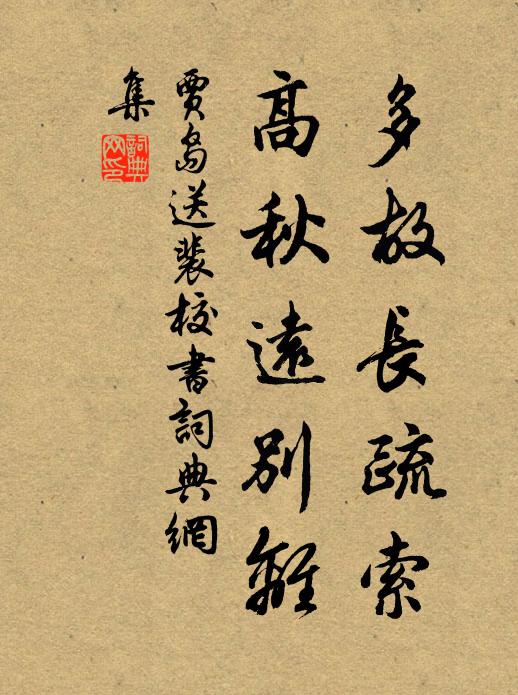 多故長疏索
高秋遠別離
賈島送裴校書詞典網
集
詞典
网印